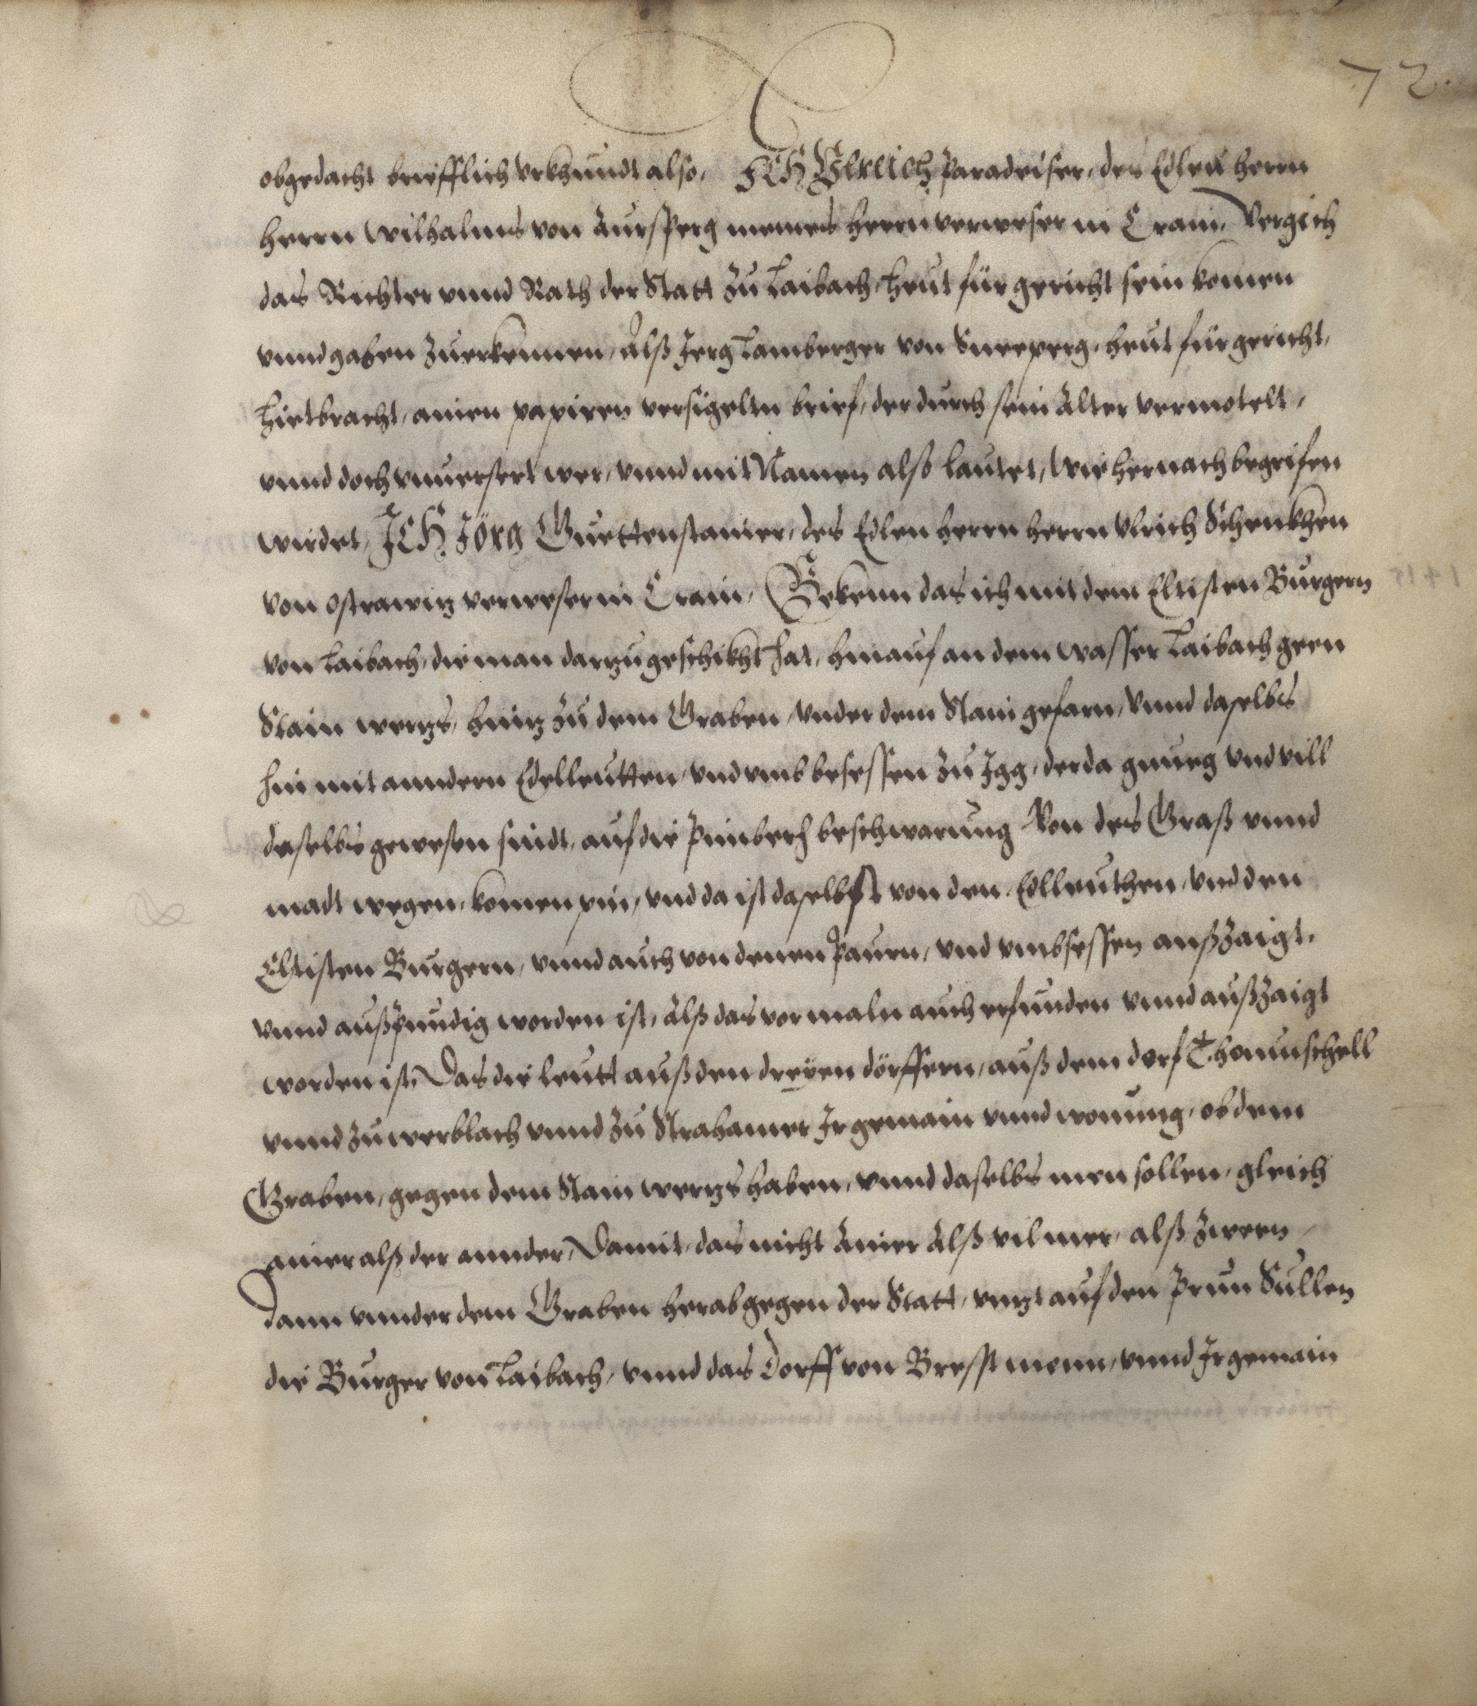 72.
obgedacht briefflich Vrkhundt also, ICH Ulreich Paradeiser, des Edlen herrn
herrn Wilhalms von Aursperg meines herrn verweser in Crain, Vergich
das Richter vnnd Rath der Statt Zu Laibach, heut für gericht sein komen
vnnd gaben Zuerkennen, Alß Jerg Lamberger von Sneeperg, heut für gericht,
hietbracht, ainen papiren versigeltn brief, der durch sein Alter vermotelt,
vnnd doch vnuersert wer, vnnd mit Namen also lautet, Wie hernach begrifen
wirdet, ICH Jörg Guettenstainer, des Edlen herrn herrn Vlrich Schenkhen
von Ostrawitz verweser in Crain, Bekenn das ich mit dem Eltisten Burgern
von Laibach, die man darzu geschikht hat, hinauf an dem wasser Laibach geen
Stain wertzs, hintz Zu dem Graben, vnder dem Stain gefarn, Vnnd daselbs
hin mit anndern Edelleutten, vnd vmbbesessen Zu Igg, der da gnueg vnd vill
daselbs gewesen sindt, auf die beschwarung Von des Graß vnnd
madt wegen, komen pin, vnd da ist daselbst von den Edlleuthen, vnd den
Eltisten Burgern, vnnd auch von denen Paurn, vnd vmbsessen außzaigt,
vnnd außpundig worden ist, Alß das vormaln auch erfunden vnnd außzaigt
worden ist, Das die leutt auß den dreyen dörffern, auß dem dorf Thomischell
vnnd zu werblach vnnd Zu Strahamer Ir gemain vnnd wonung, ob dem
Graben, gegen dem Stain wertzs haben, vnnd daselbs men sollen, gleich
ainer alß der annder, Damit, das nicht Ainer Alß vil mer, alß Zween
Dann vnnder dem Graben herab gegen der Statt, vntzt auf den Prun Sullen
die Burger von Laibach, vnnd das Dorff von Bresst menn, vnnd Ir gemain